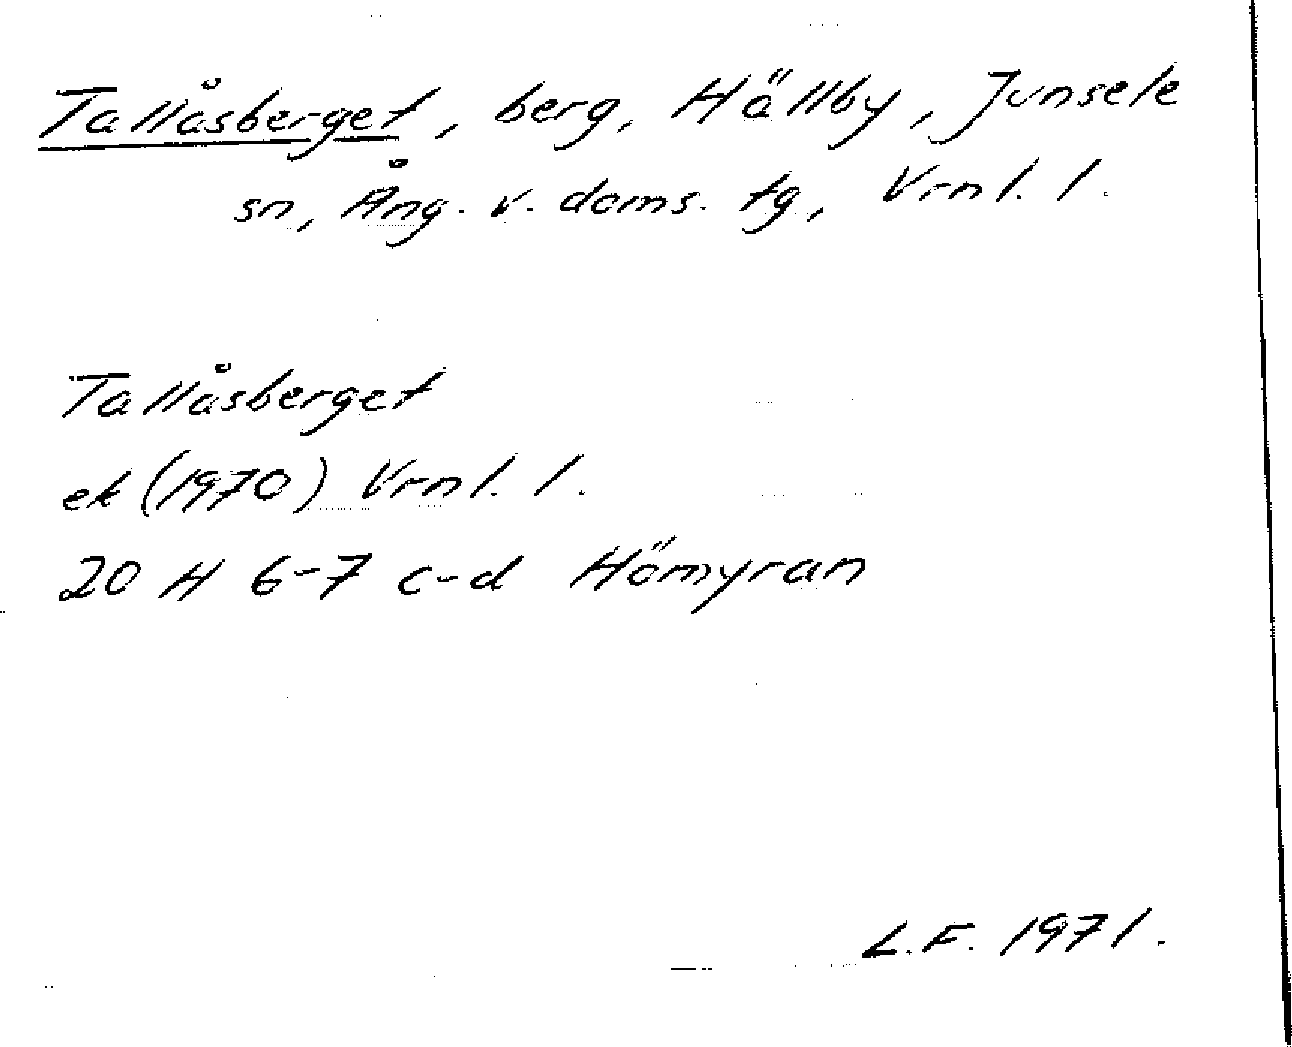 Tallåsberget, berg, Hällby, Junsele
sn, Ång. v. doms. tg, Vrnl. l.
Tallåsberget
ek (1970) Vrnl. l.
20 H 6-7 c-d Hömyran
L.F. 1971.